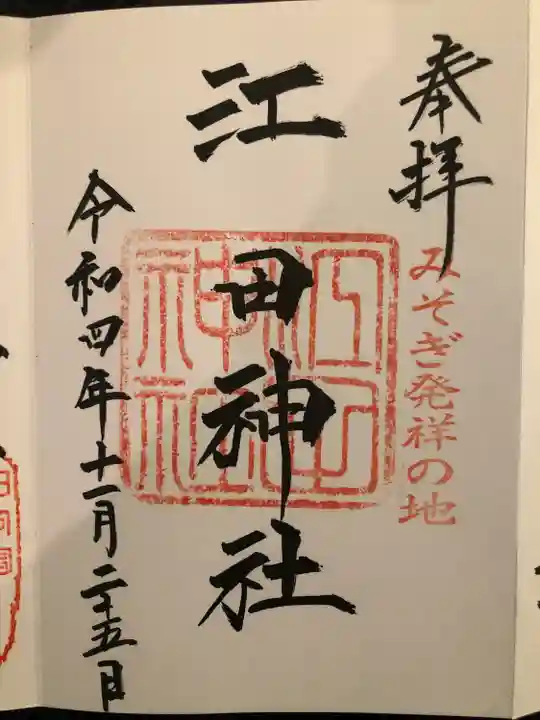 奉拝
みそぎ発祥の地
江田神社
江田神社
令和四年十一月二十五日